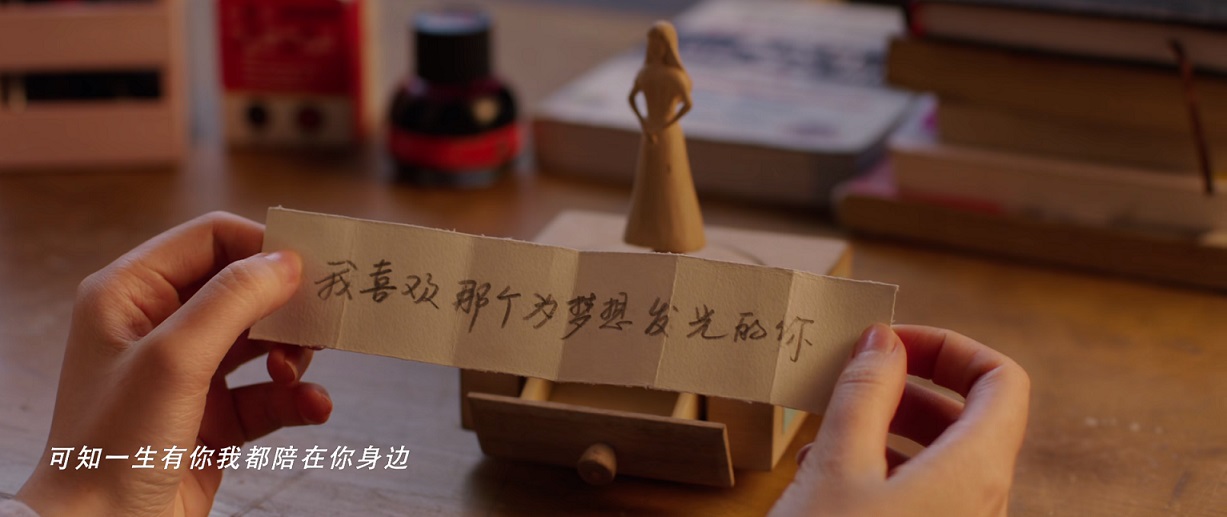 我喜欢那个为梦想发光的你
可知一生有你我都陪在你身边